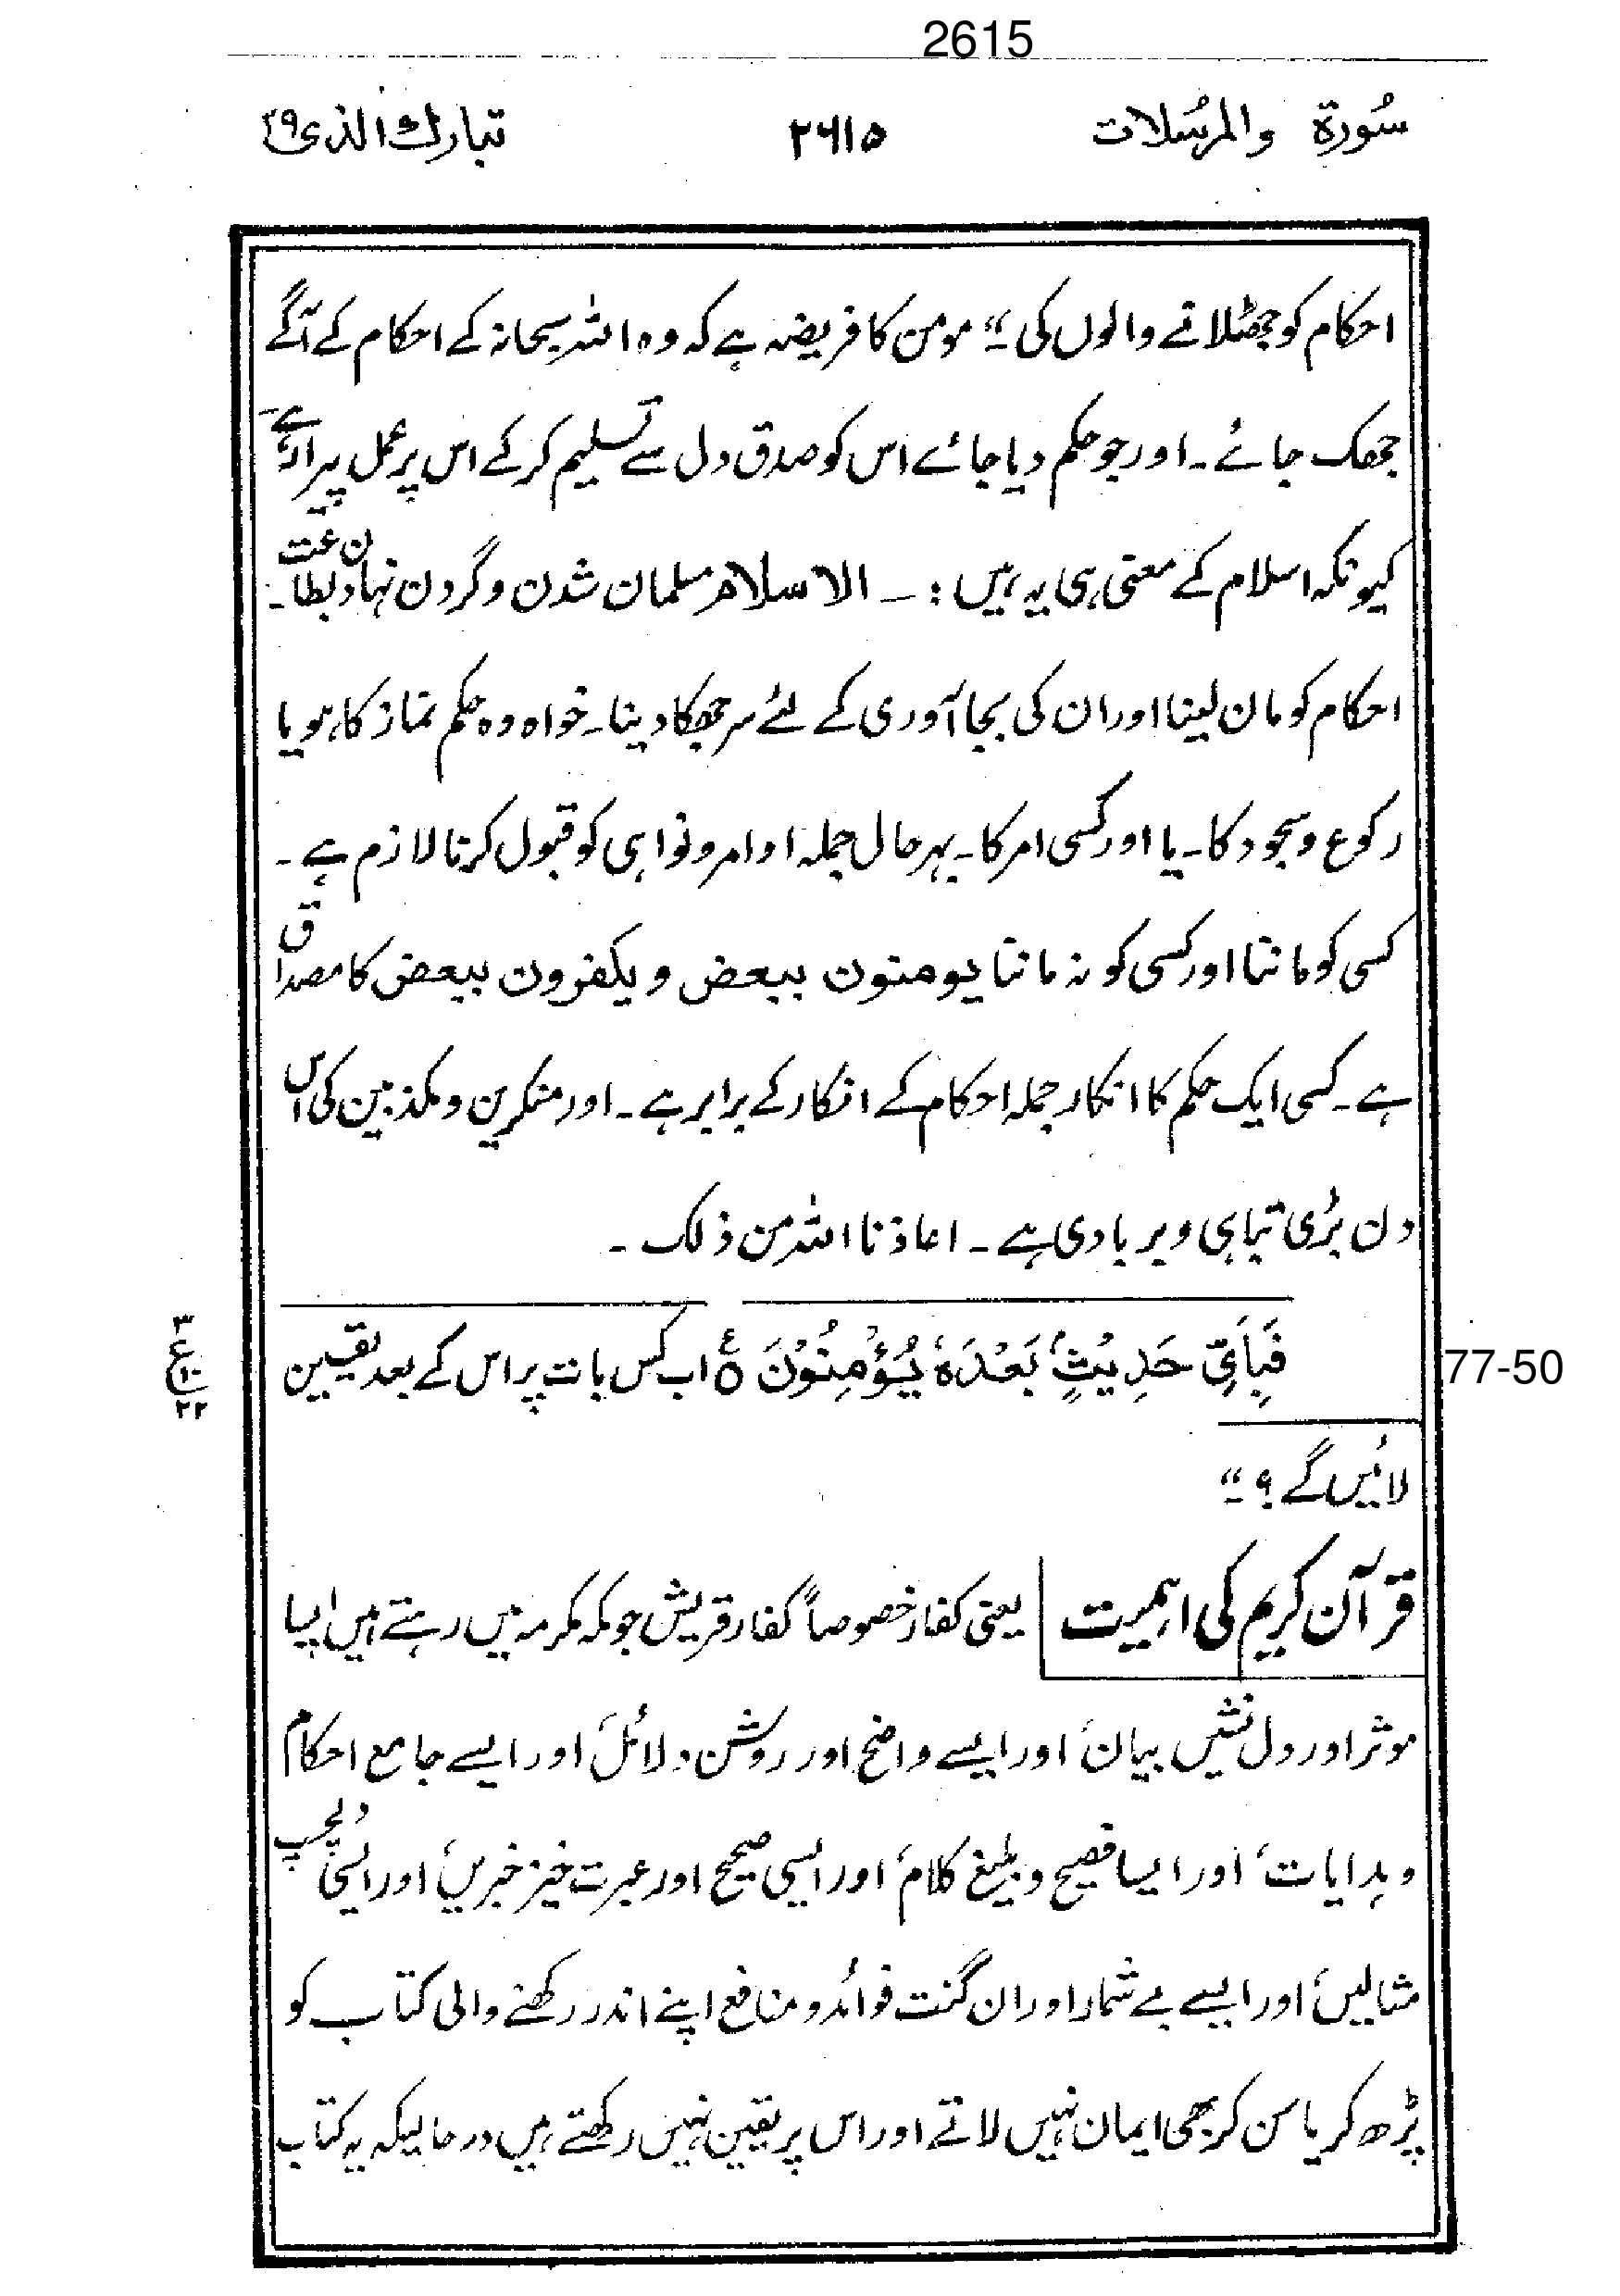 2615
سُورة والمرسُلات ۲۶۱۵ تبارك الذی ۲۹
احکام کو جھٹلانے والوں کی ”۔ مومن کا فریضہ ہے کہ وہ اللہ سبحانہ کے احکام کے آگے
جھک جائے۔ اور جو حکم دیا جائے اس کو صدق دل سے تسلیم کر کے اس پر عمل پیرا رہے
کیونکہ اسلام کے معنی ہی یہ ہیں :۔ الاسلام مسلمان شدن و گردن نہادن بطاعت۔
احکام کو مان لینا اور ان کی بجا آوری کے لئے سر جھکا دینا۔ خواہ وہ حکم نماز کا ہو یا
رکوع و سجود کا۔ یا اور کسی امر کا۔ بہر حال جملہ اوامر و نواہی کو قبول کرنا لازم ہے۔
کسی کو ماننا اور کسی کو نہ ماننا یومنون ببعض ویکفرون ببعض کا مصداق
ہے۔ کسی ایک حکم کا انکار جملہ احکام کے انکار کے برابر ہے۔ اور منکرین و مکذبین کی اس
دن بڑی تباہی و بربادی ہے۔ اعاذنا اللہ من ذلک۔
فَبِاَیِّ حَدِیْثٍۭ بَعْدَهٗ یُؤْمِنُوْنَ ۵ اب کس بات پر اس کے بعد یقین
۳ ع ۱۰ ۲۲
77-50
لائیں گے ؟ ”
قرآن کریم کی اہمیت یعنی کفار خصوصاً کفار قریش جو مکہ مکرمہ میں رہتے ہیں ایسا
موثر اور دل نشیں بیان، اور ایسے واضح اور روشن دلائل، اور ایسے جامع احکام
و ہدایات، اور ایسا فصیح و بلیغ کلام، اور ایسی صحیح اور عبرت خیز خبریں، اور ایسی دلچسپ
مثالیں، اور ایسے بے شمار اور ان گنت فوائد و منافع اپنے اندر رکھنے والی کتاب کو
پڑھ کر یا سن کر بھی ایمان نہیں لاتے اور اس پر یقین نہیں رکھتے ہیں در حالیکہ یہ کتاب